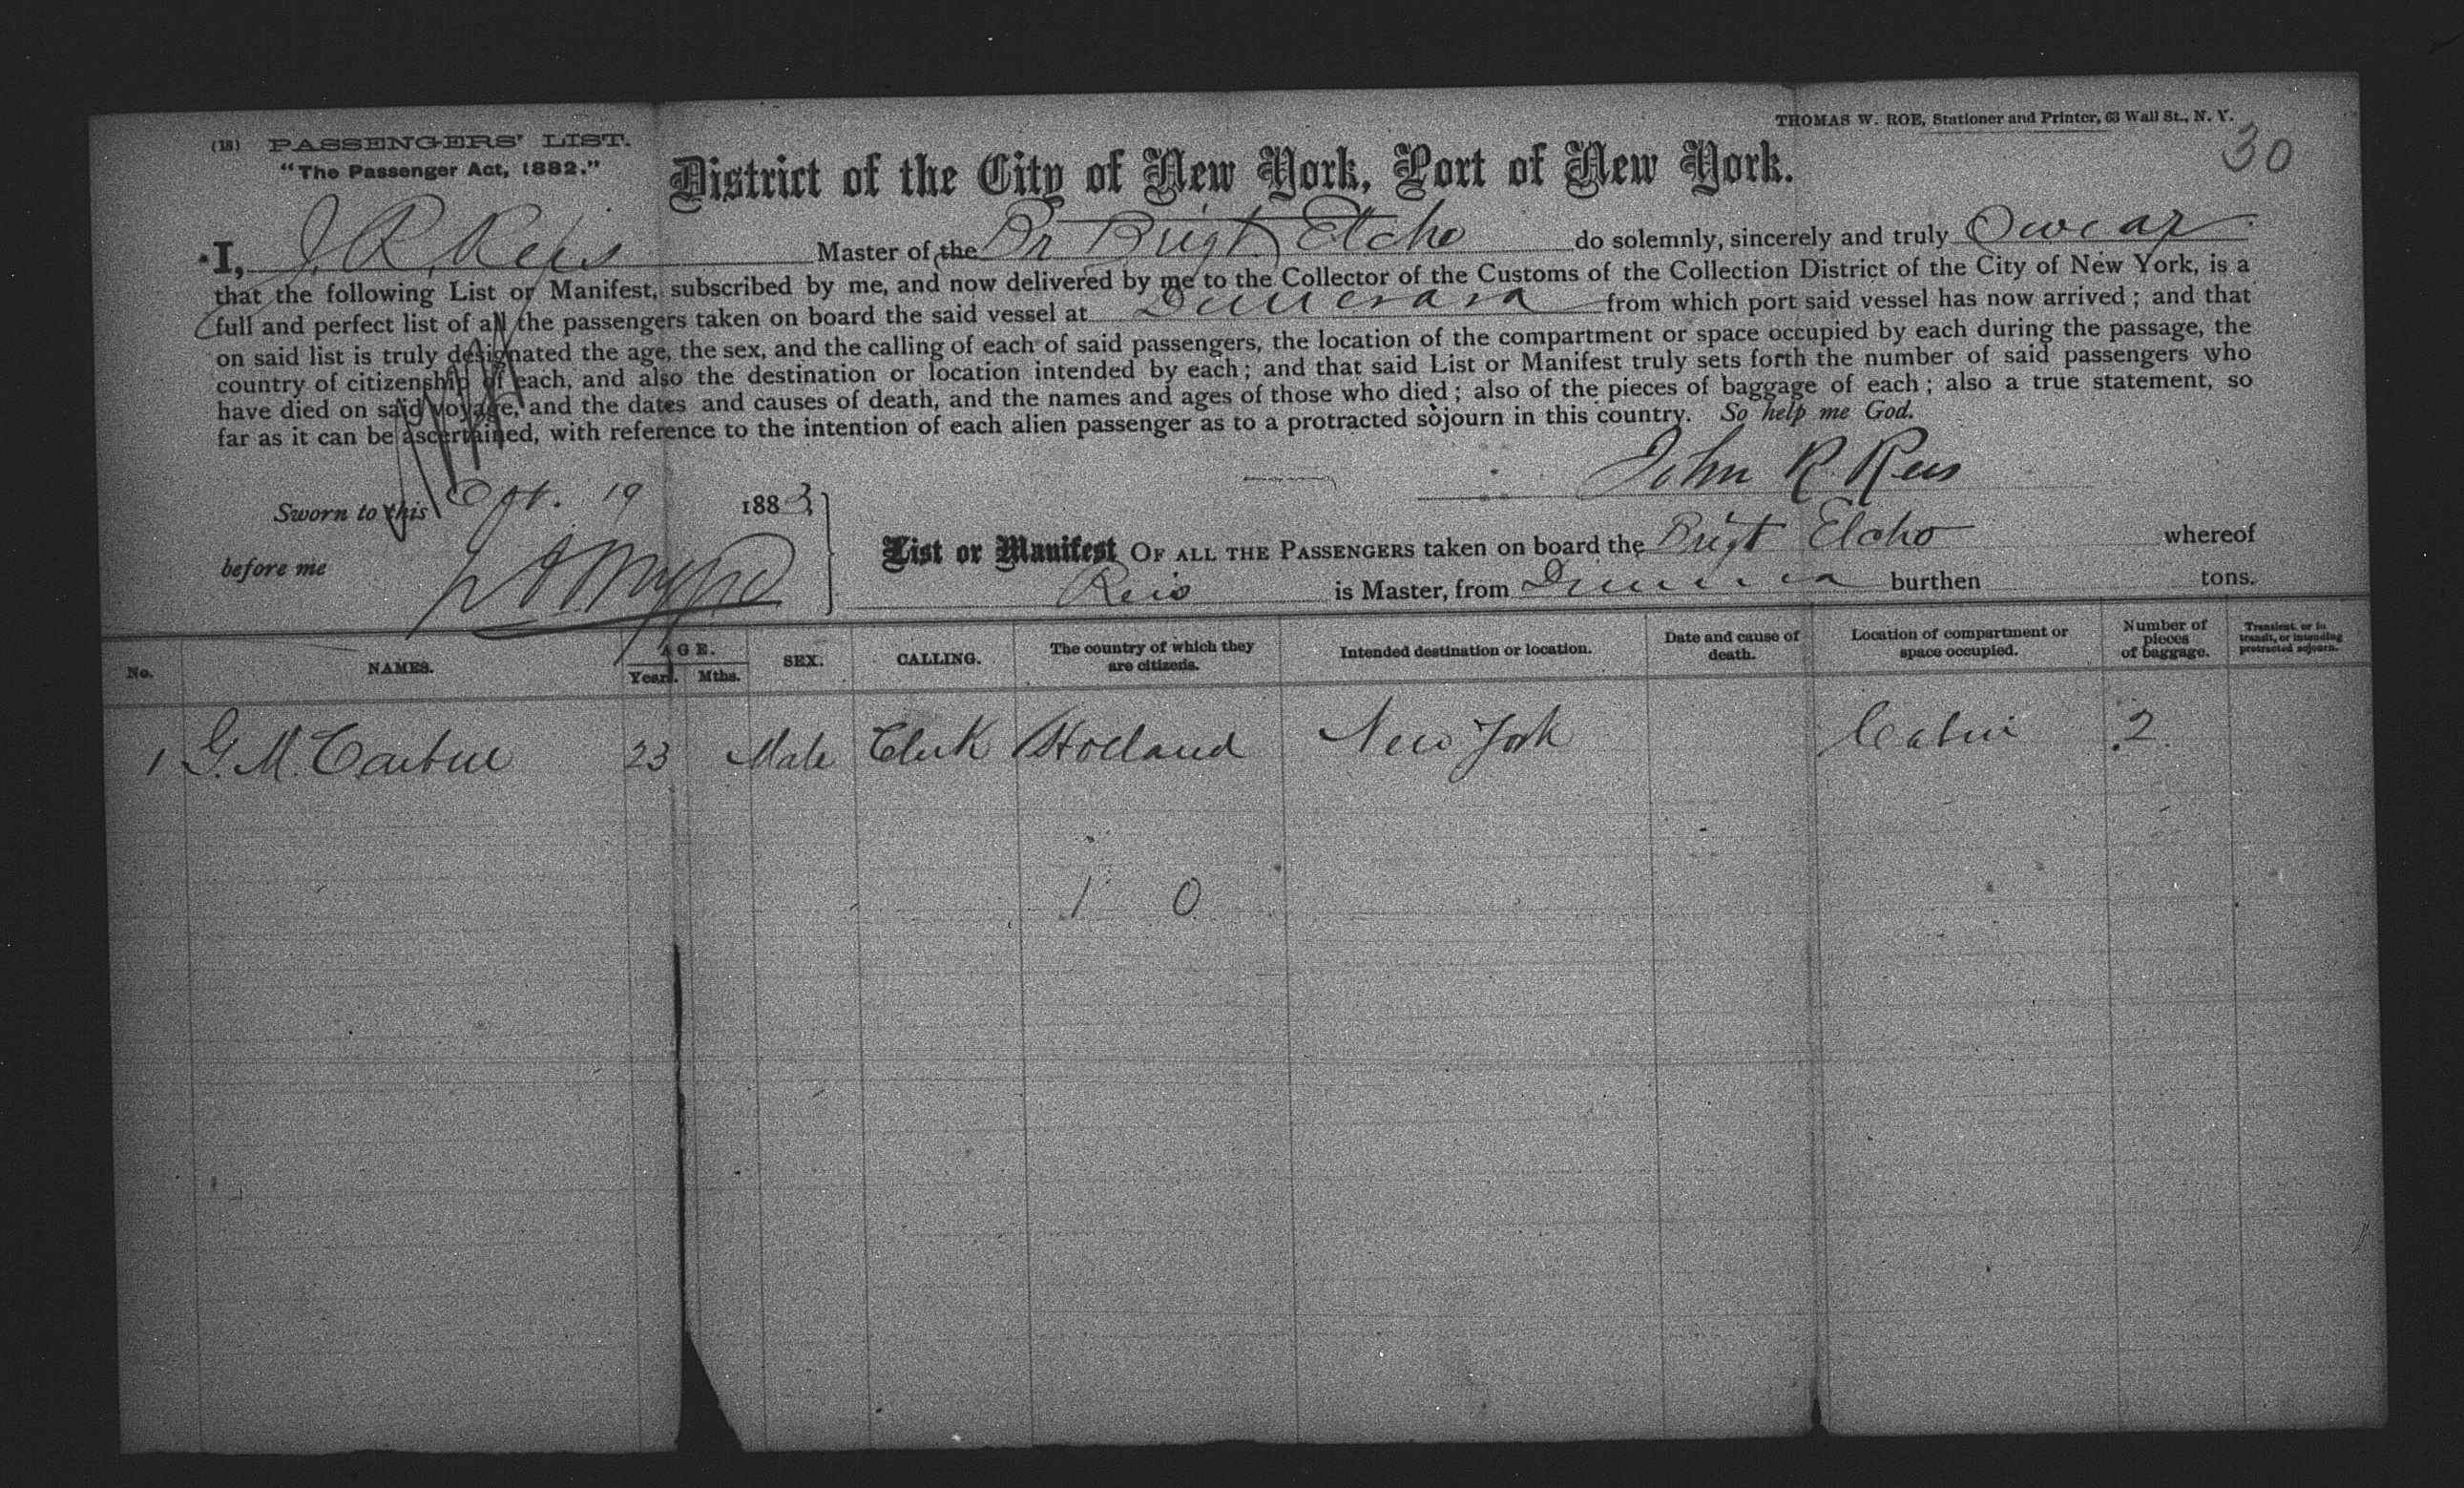 THOMAS W. ROE, Stationer and Printer, 63 Wall St., N. Y.
(18) PASSENGERS' LIST.
"The Passenger Act, 1882."
District of the City of New York, Port of New York.
30
I, J. R. Reis Master of the Br Brigt. Elcho do solemnly, sincerely and truly Swear
that the following List or Manifest, subscribed by me, and now delivered by me to the Collector of the Customs of the Collection District of the City of New York, is a
full and perfect list of all the passengers taken on board the said vessel at Demerara from which port said vessel has now arrived; and that
on said list is truly designated the age, the sex, and the calling of each of said passengers, the location of the compartment or space occupied by each during the passage, the
country of citizenship of each, and also the destination or location intended by each; and that said List or Manifest truly sets forth the number of said passengers who
have died on said voyage, and the dates and causes of death, and the names and ages of those who died; also of the pieces of baggage of each; also a true statement, so
far as it can be ascertained, with reference to the intention of each alien passenger as to a protracted sojourn in this country. So help me God.
John R. Reis
Sworn to this 19 1883
before me
List or Manifest OF ALL THE PASSENGERS taken on board the Brigt Elcho whereof
Reis is Master, from Demerara burthen tons.
No. NAMES. AGE. Years. Mths. SEX. CALLING. The country of which they are citizens. Intended destination or location. Date and cause of death. Location of compartment or space occupied. Number of pieces of baggage. Transient, or in transit, or intending protracted sojourn.
1 G. M. 23 Male Clerk Holland New York Cabin 2
1 0